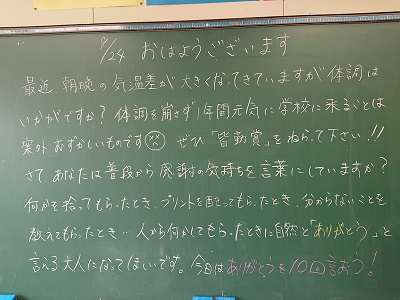 9/24 おはようございます
最近、朝晩の気温差が大きくなってきていますが体調は
いかがですか?体調を崩さず1年間元気に学校に来ることは
案外むずかしいものです ぜひ「皆勤賞」をねらって下さい!!
さて、あなたは普段から感謝の気持ちを言葉にしていますか?
何かを拾ってもらったとき、プリントを配ってもらったとき、分からないことを
教えてもらったとき…人から何かしてもらったときに自然と「ありがとう」と
言える大人になってほしいです。今日はありがとうを10回言おう!